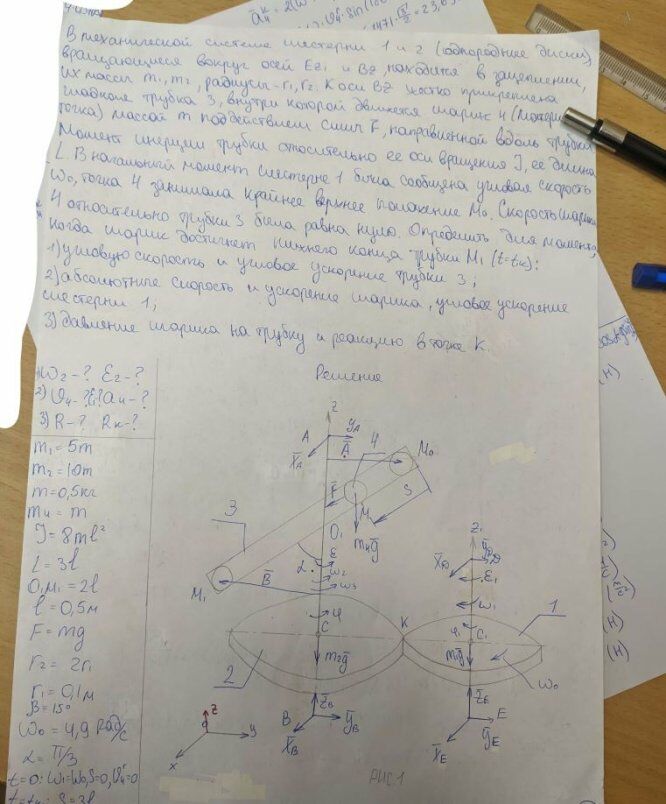 В механической системе шестерни 1 и 2 (однородные диски)
вращающиеся вокруг осей Ez₁ и Bz, находится в зацеплении,
их массы m₁, m₂, радиусы - r₁, r₂. К оси Bz жестко прикреплена
гладкая трубка 3, внутри которой движется шарик 4 (матери
точка) массой m под действием силы F, направленной вдоль трубки
Момент инерции трубки относительно ее оси вращения J, ее длина
L. В начальный момент шестерне 1 была сообщена угловая скорость
ω₀, точка 4 занимала крайнее верхнее положение M₀. Скорость шарика
4 относительно трубки 3 была равна нулю. Определить для момента,
когда шарик достигнет нижнего конца трубки M₁ (t=tк):
1) угловую скорость и угловое ускорение трубки 3;
2) абсолютные скорость и ускорение шарика, угловое ускорение
шестерни 1;
3) давление шарика на трубку и реакцию в точке K.
Решение
1) ω₂-? ε₂-?
2) υ₄-? ε₁? a₄-?
3) R-? Rк-?
m₁ = 5m
m₂ = 10m
m = 0,5кг
m₄ = m
J = 8ml²
L = 3l
O₁M₁ = 2l
l = 0,5м
F = mg
r₂ = 2r₁
r₁ = 0,1м
β = 15°
ω₀ = 4,9 рад/с
α = π/3
t=0: ω₁=ω₀, S=0, υ₄ʳ=0
t=tк: S=3l
z
A
y̅A
x̅A
A̅
4
M₀
F̅
M
S
m₄g̅
3
O₁
α
ε
ω₂
ω₃
M₁
B̅
φ
C
K
m₂g̅
2
B
z̅B
y̅B
x̅B
z₁
y̅D
D
x̅D
ε₁
ω₁
φ₁
C₁
m₁g̅
1
ω₀
z̅E
E
y̅E
x̅E
z
y
x
РИС.1
(Н)
(Н)
(Н)